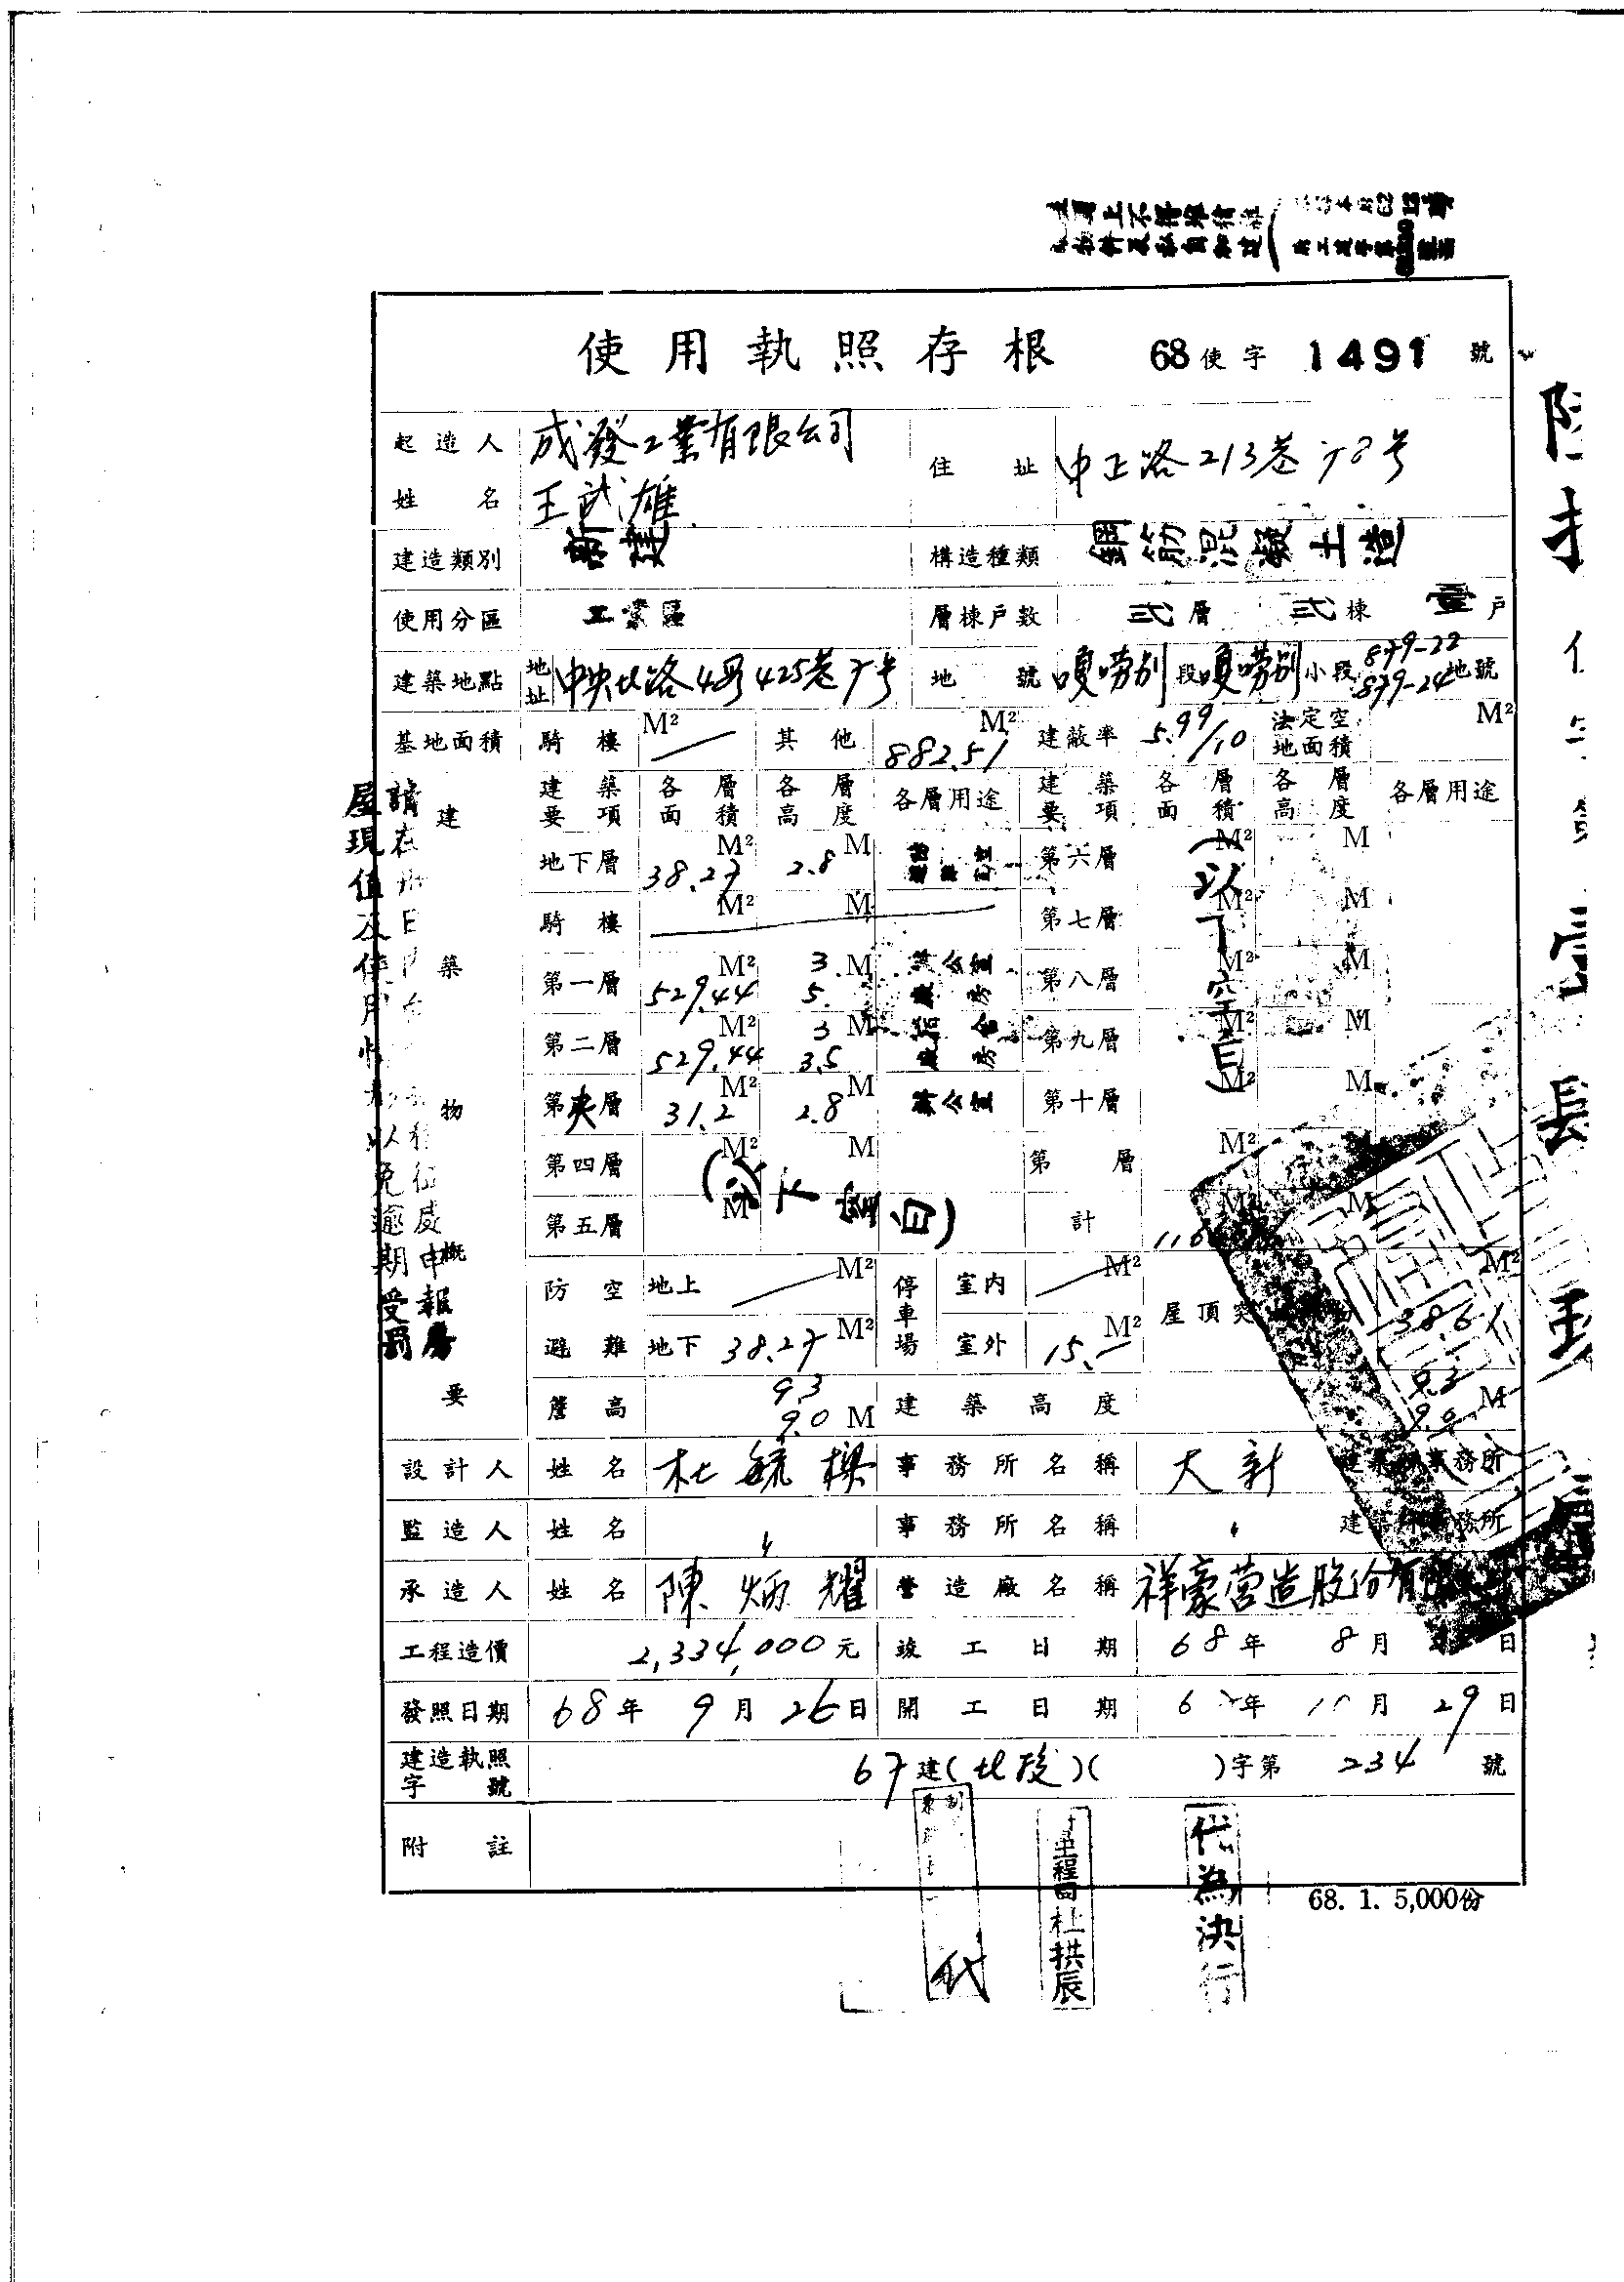 使用執照存根 68使字 1491 號
起造人 成發工業有限公司
姓名 王武雄
住址 中正路213巷78号
建造類別 新建 構造種類 鋼筋混凝土造
使用分區 工業區 層棟戶數 弍層 弍棟 壹戶
建築地點 地址 中央北路4段425巷7号 地號 嗄嘮別段嗄嘮別小段 879-22 879-24 地號
基地面積 騎樓 M² 其他 882.51 M² 建蔽率 5.99/10 法定空地面積 M²
建築物概要
建築要項 各層面積 各層高度 各層用途 建築要項 各層面積 各層高度 各層用途
地下層 38.27 M² 2.8 M 第六層 M² M
騎樓 M² M 第七層 M² M
第一層 529.44 M² 3. 5. M 辦公室 廠房 第八層 M² M
第二層 529.44 M² 3 3.5 M 宿舍 廠房 第九層 M² M
第夾層 31.2 M² 2.8 M 辦公室 第十層 M² M
第四層 M² M 第 層 M²
第五層 M² 計 M² M
(以下空白)
(以下空白)
防空避難 地上 M² 停車場 室內 M² 屋頂突 38.61 M²
地下 38.27 M² 室外 15.- M²
簷高 9.3 9.0 M 建築高度 9.3 9.0 M
設計人 姓名 杜毓樑 事務所名稱 大新 建築師事務所
監造人 姓名 〃 事務所名稱 〃 建築師事務所
承造人 姓名 陳炳耀 營造廠名稱 祥豪营造股份有
工程造價 2,334,000元 竣工日期 68年 8月 日
發照日期 68年 9月 26日 開工日期 6 年 月 29日
建造執照字號 67建(北投)( )字第 234 號
附註
68. 1. 5,000份
杜拱辰
代
代為決行
屋現值及使用
以免逾期受罰
申報房